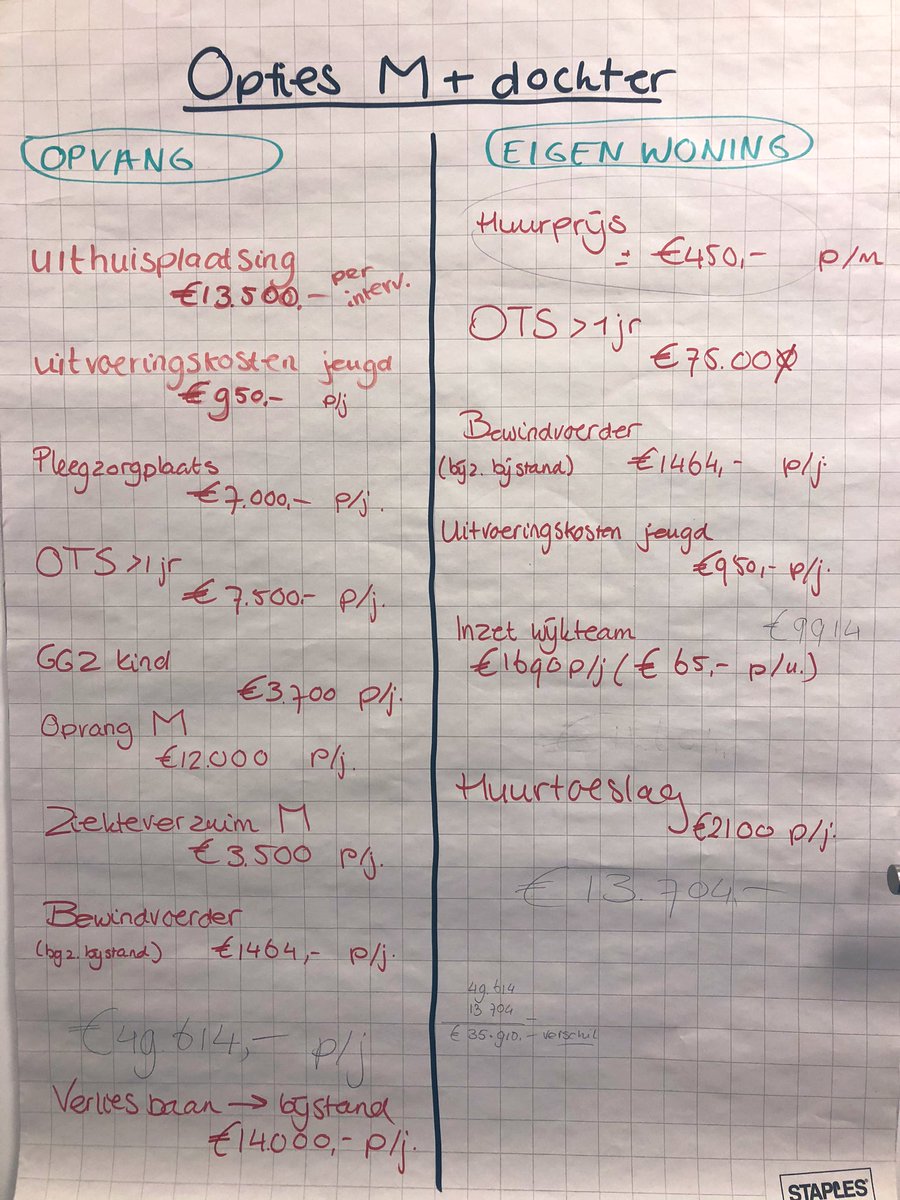 Opties M + dochter
OPVANG
Uithuisplaatsing
€13.500,- per
interv.
uitvoeringskosten jeugd
€950,- p/j
Pleegzorgplaats
€7.000,- p/j.
OTS >1 jr
€7.500,- p/j.
GGZ kind
€3.700 p/j.
Opvang M
€12.000 p/j.
Ziekteverzuim M
€3.500 p/j.
Bewindvoerder
(bijz. bijstand) €1464,- p/j.
€49.614,- p/j
Verlies baan → bijstand
€14.000,- p/j.
EIGEN WONING
Huurprijs
± €450,- p/m
OTS >1 jr
€75.00
Bewindvoerder
(bijz. bijstand) €1464,- p/j.
Uitvoeringskosten jeugd
€950,- p/j.
Inzet wijkteam €9914
€1690 p/j (€65,- p/u.)
Huurtoeslag
€2100 p/j.
€13.704,-
49.614
13 704
€ 35.910,- verschil
STAPLES